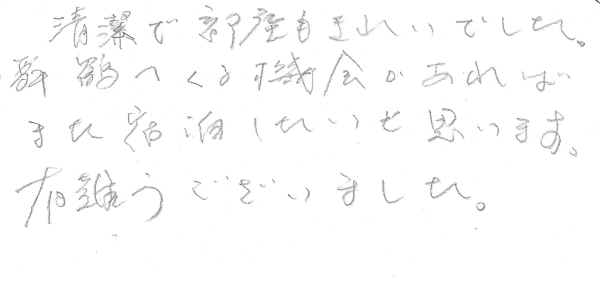 清潔で部屋もきれいでした。
舞鶴へくる機会があれば
また宿泊したいと思います。
有難うございました。